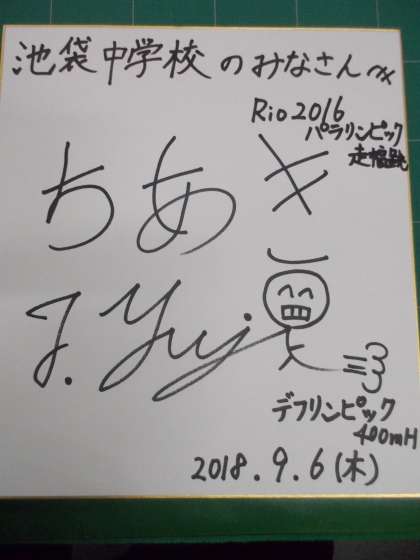 池袋中学校のみなさんへ
Rio 2016
パラリンピック
走幅跳
ちあき
J. Yuji
デフリンピック
400mH
2018.9.6(木)